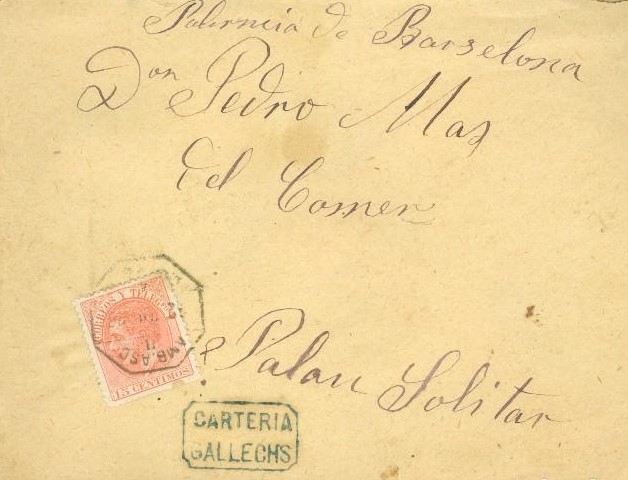 Palencia de Barselona
Don Pedro Mas
del Comer
Palau Solitar
CORREOS Y TELEGFOS
15 CENTIMOS
AMB. ASC.
CARTERIA
GALLECHS